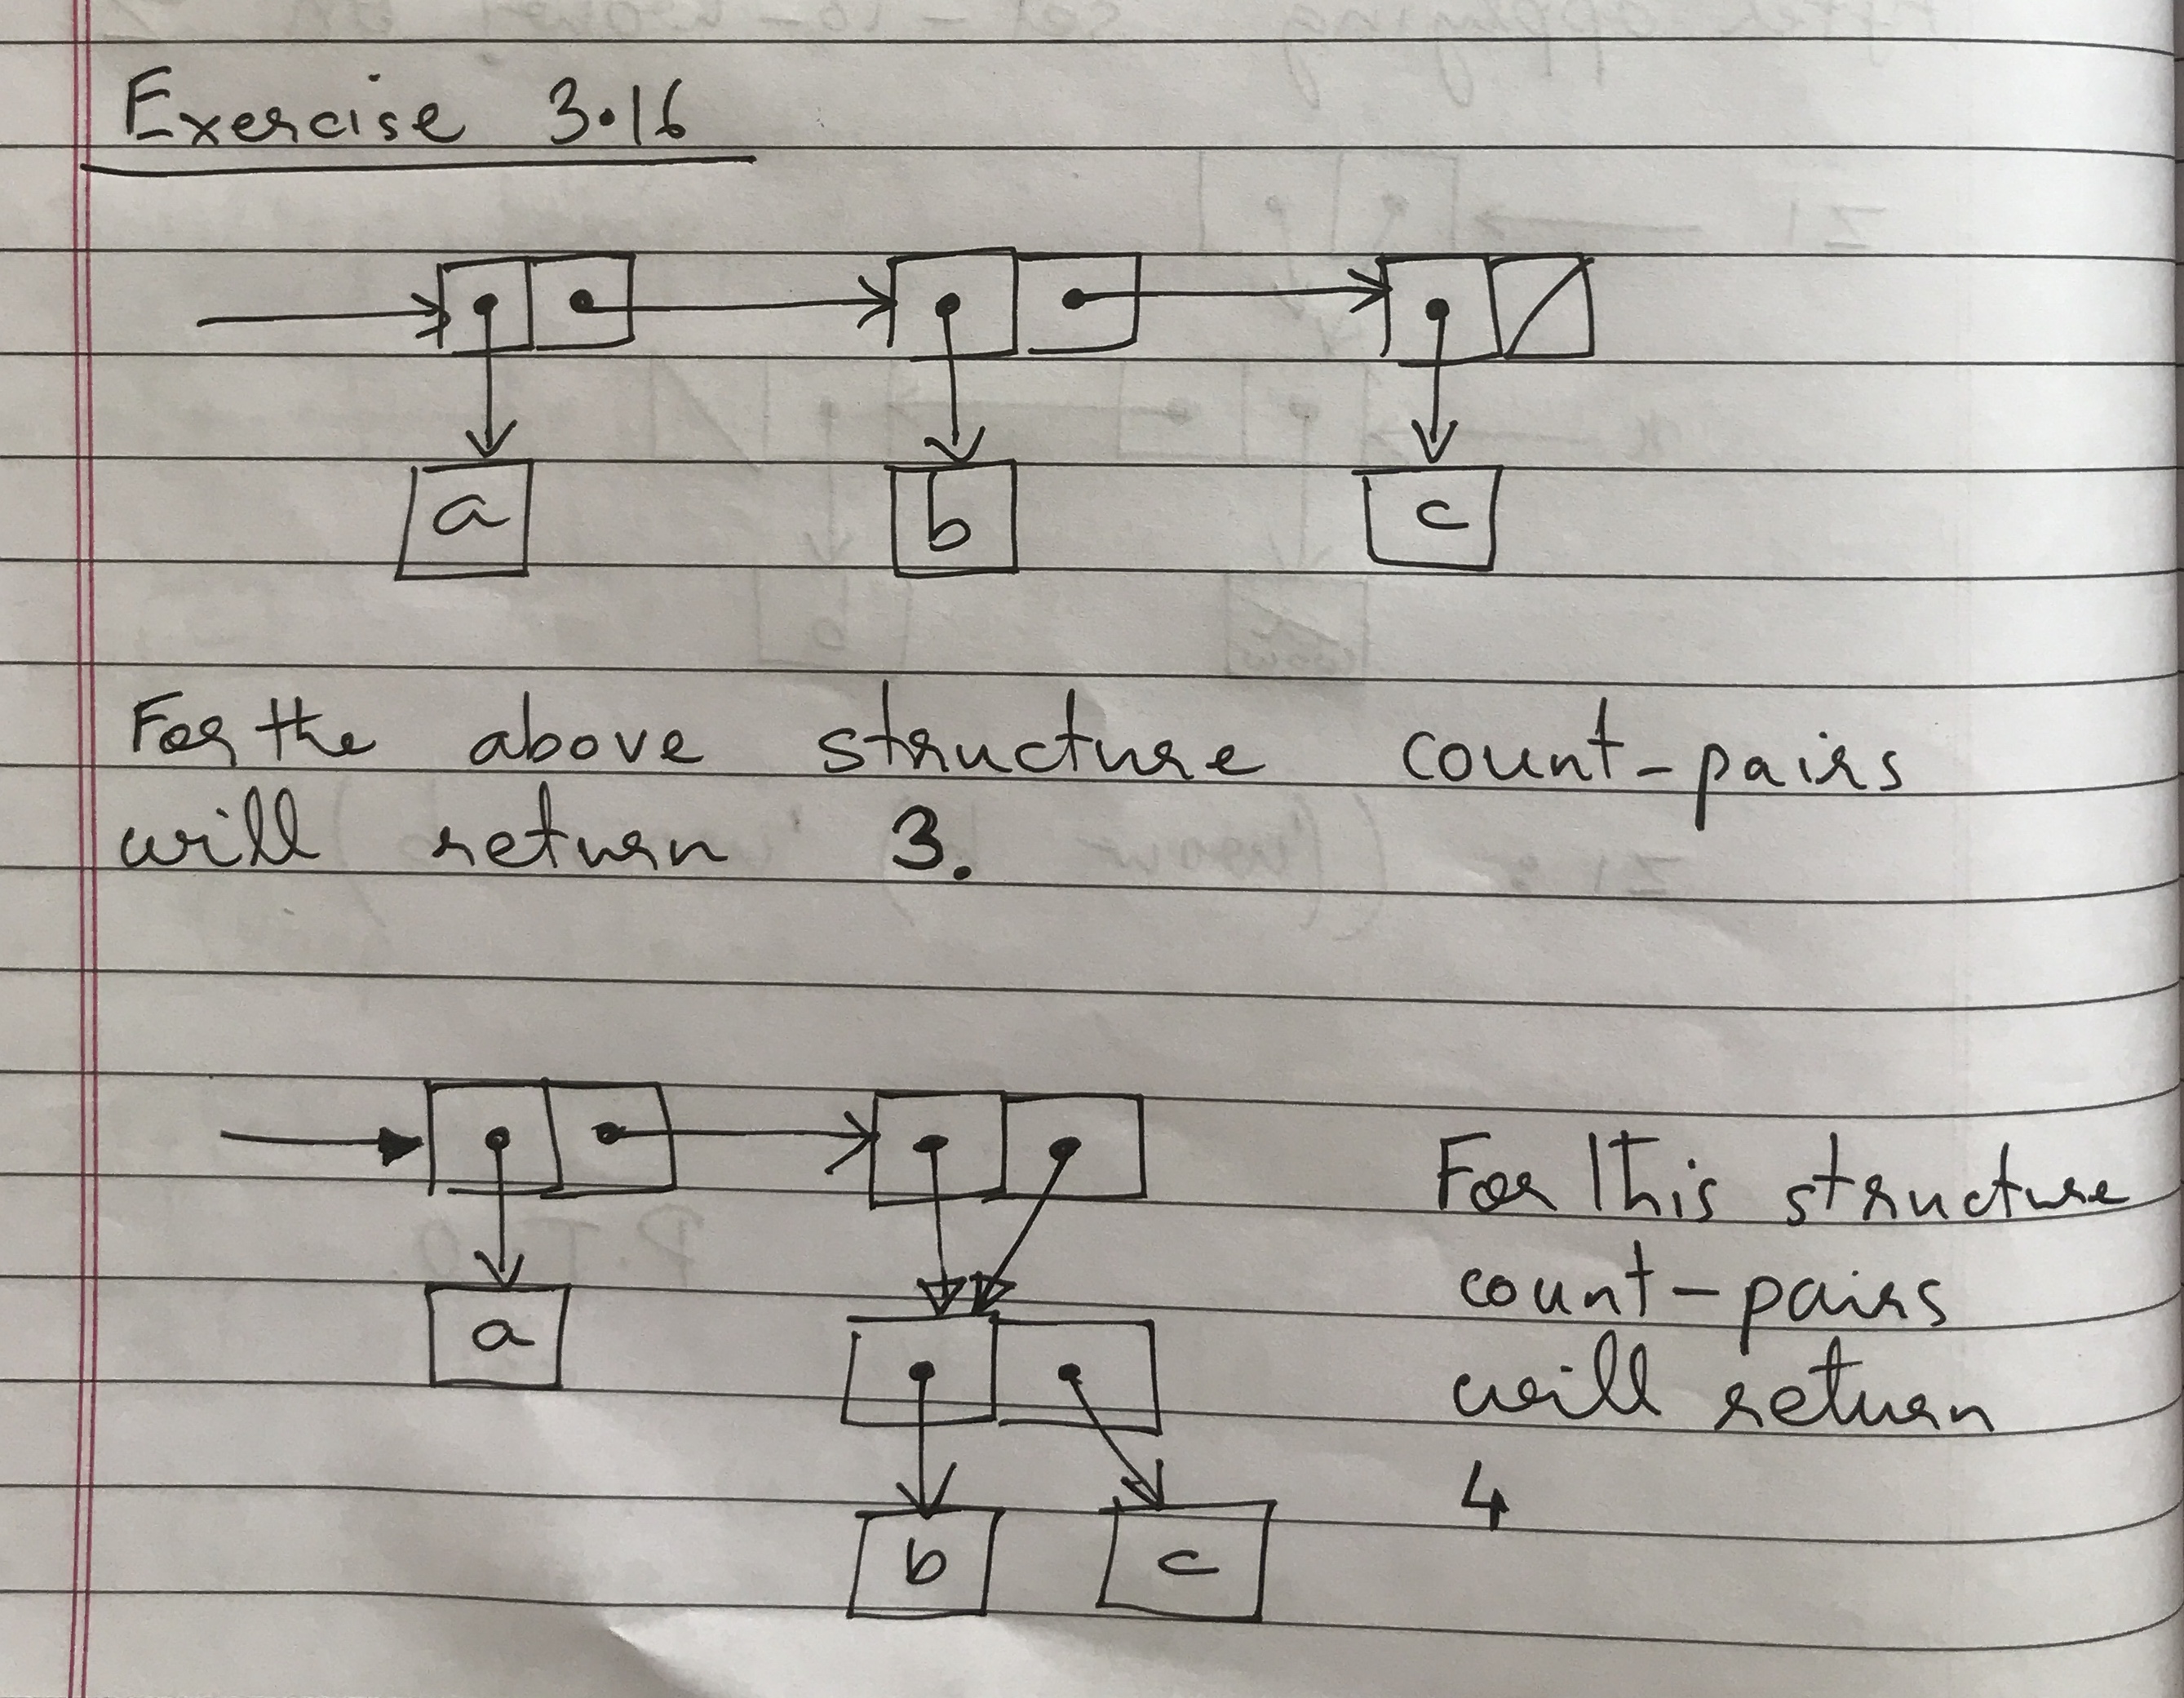 Exercise 3.16
a b c
For the above structure count-pairs
will return 3.
a
For This structure
count-pairs
will return
4
b c